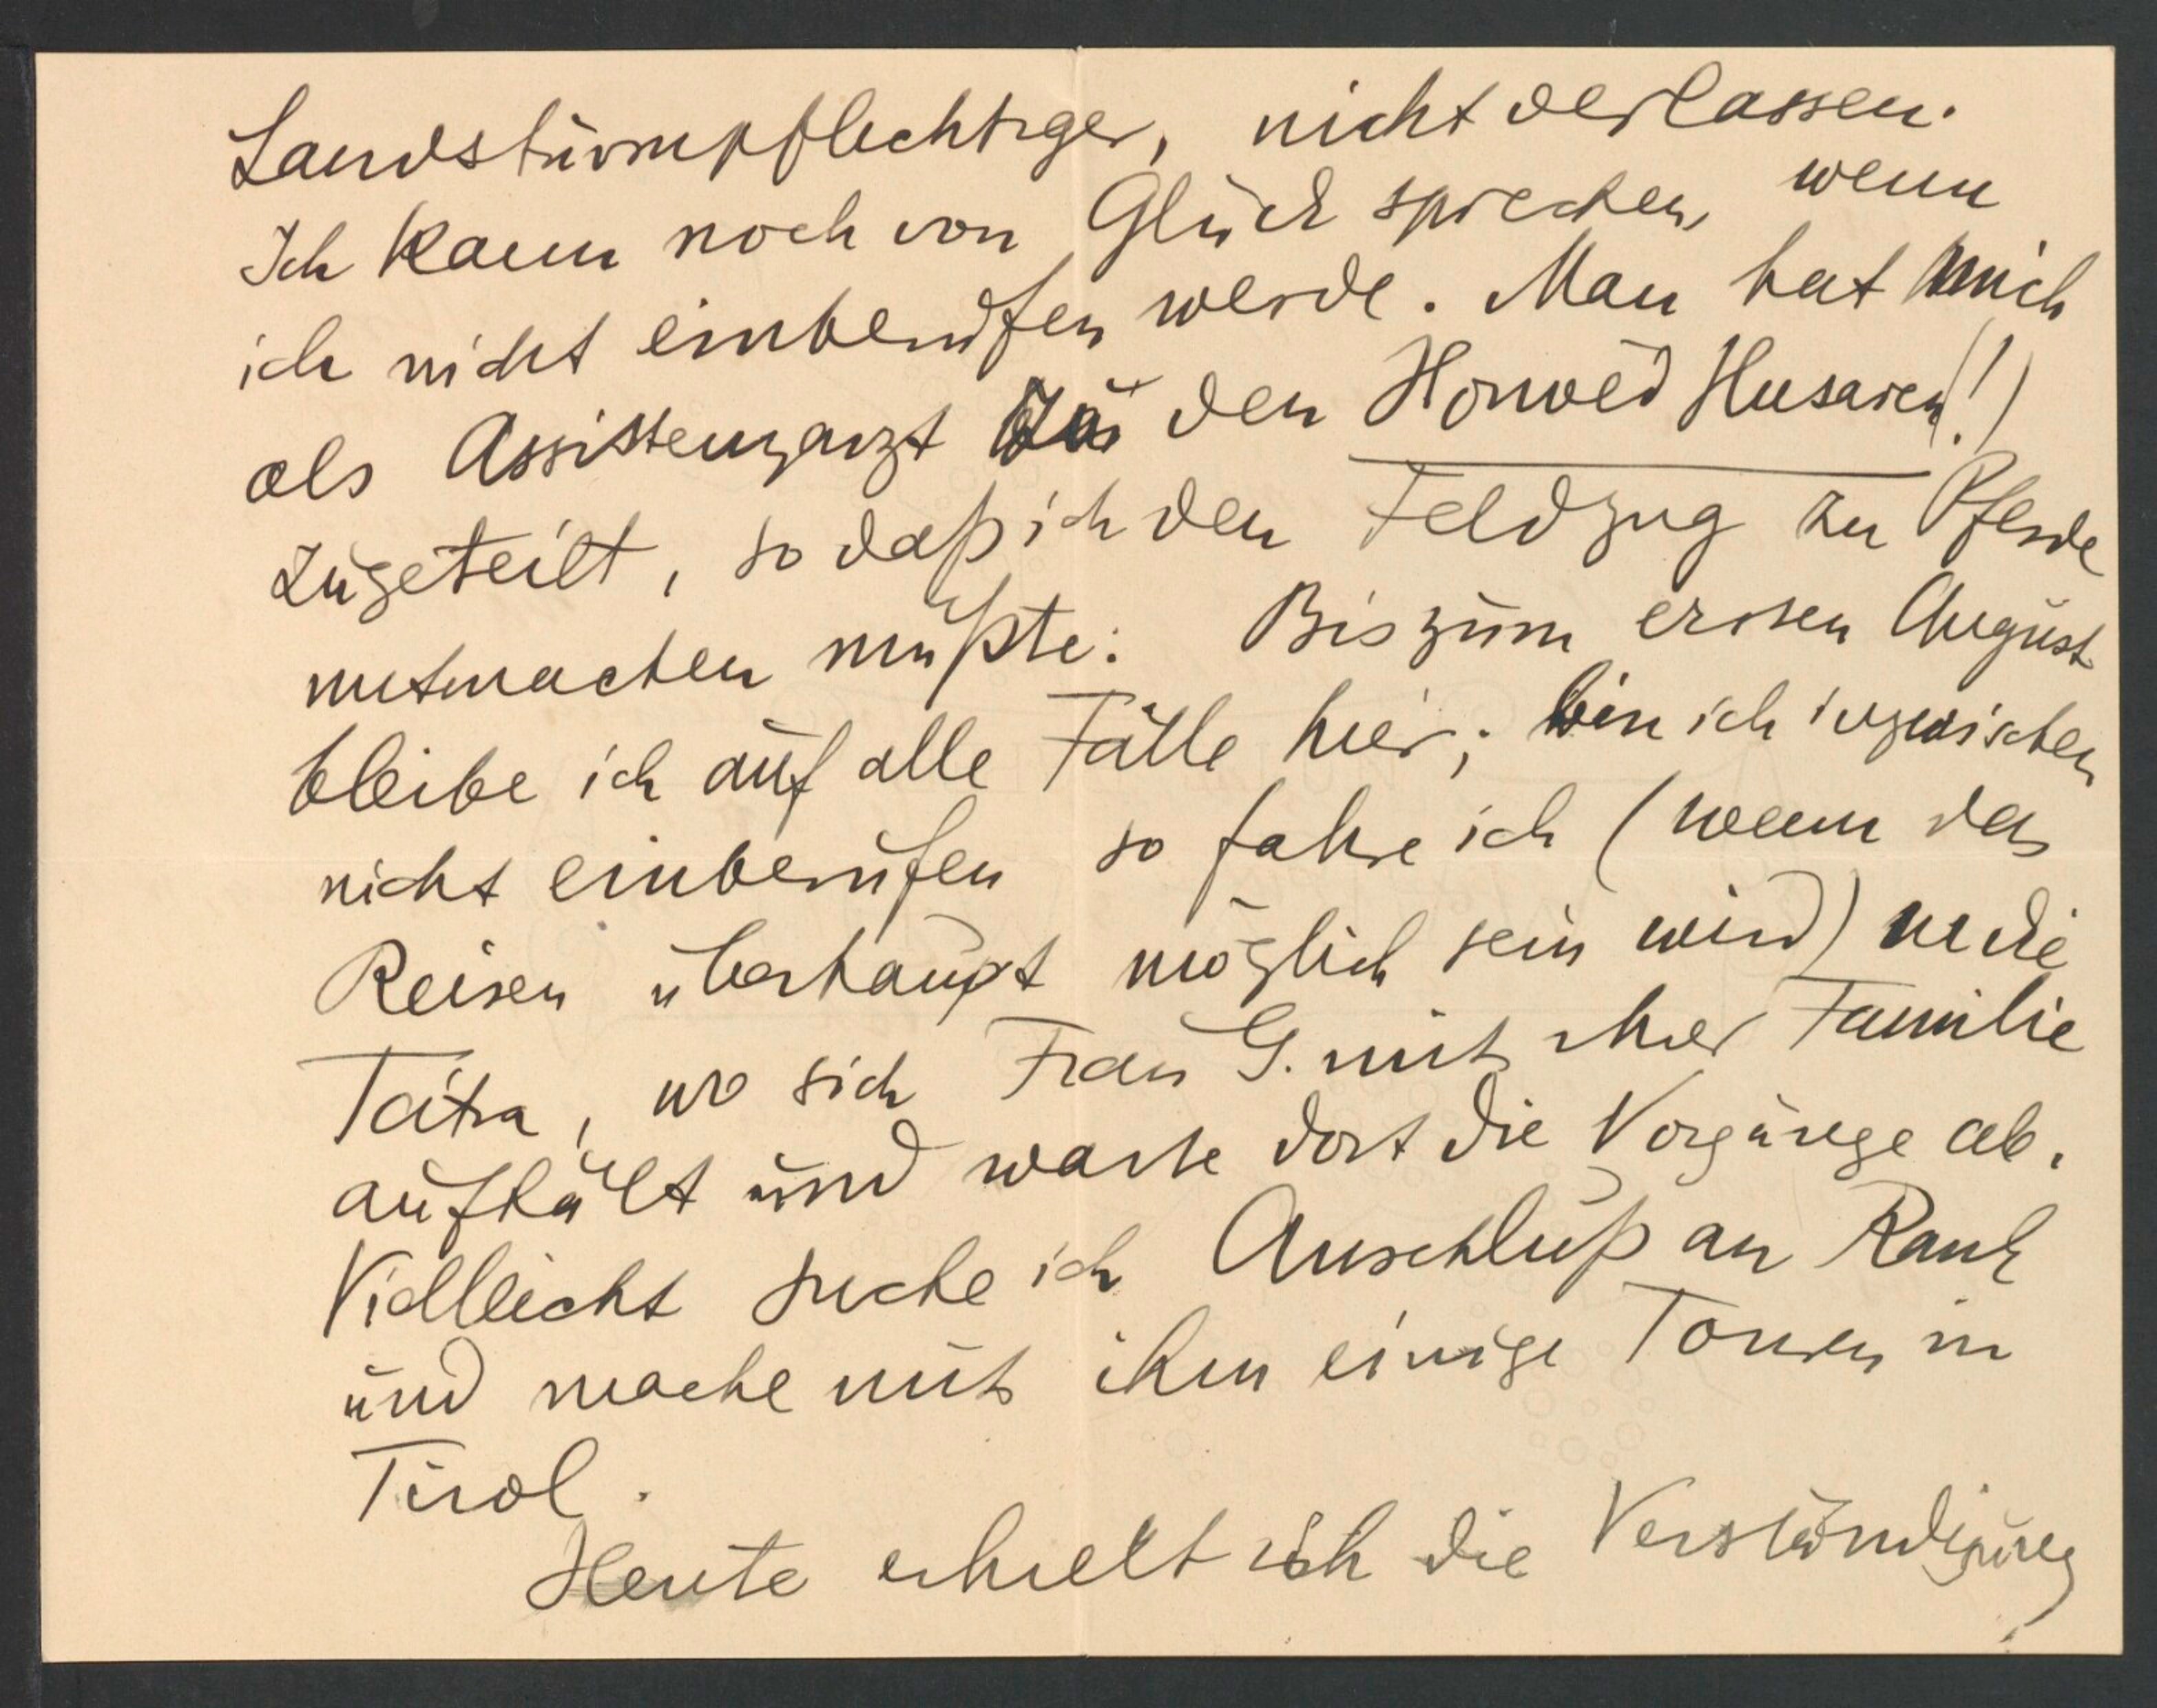 Landsturmpflichtiger, nicht verlassen.
Ich kann noch von Glück sprechen, wenn
ich nicht einberufen werde. Man hat mich
als Assistenzarzt zu den Honvéd Husaren (!)
zugeteilt, so daß ich den Feldzug zu Pferde
mitmachen müßte. Bis zum ersten August
bleibe ich auf alle Fälle hier; bin ich inzwischen
nicht einberufen so fahre ich (wenn das
Reisen überhaupt möglich sein wird) in die
Tátra, wo sich Frau G. mit ihrer Familie
aufhält und warte dort die Vorgänge ab.
Vielleicht suche ich Anschluß an Rank
und mache mit ihm einige Touren in
Tirol.
Heute erhielt ich die Verständigung